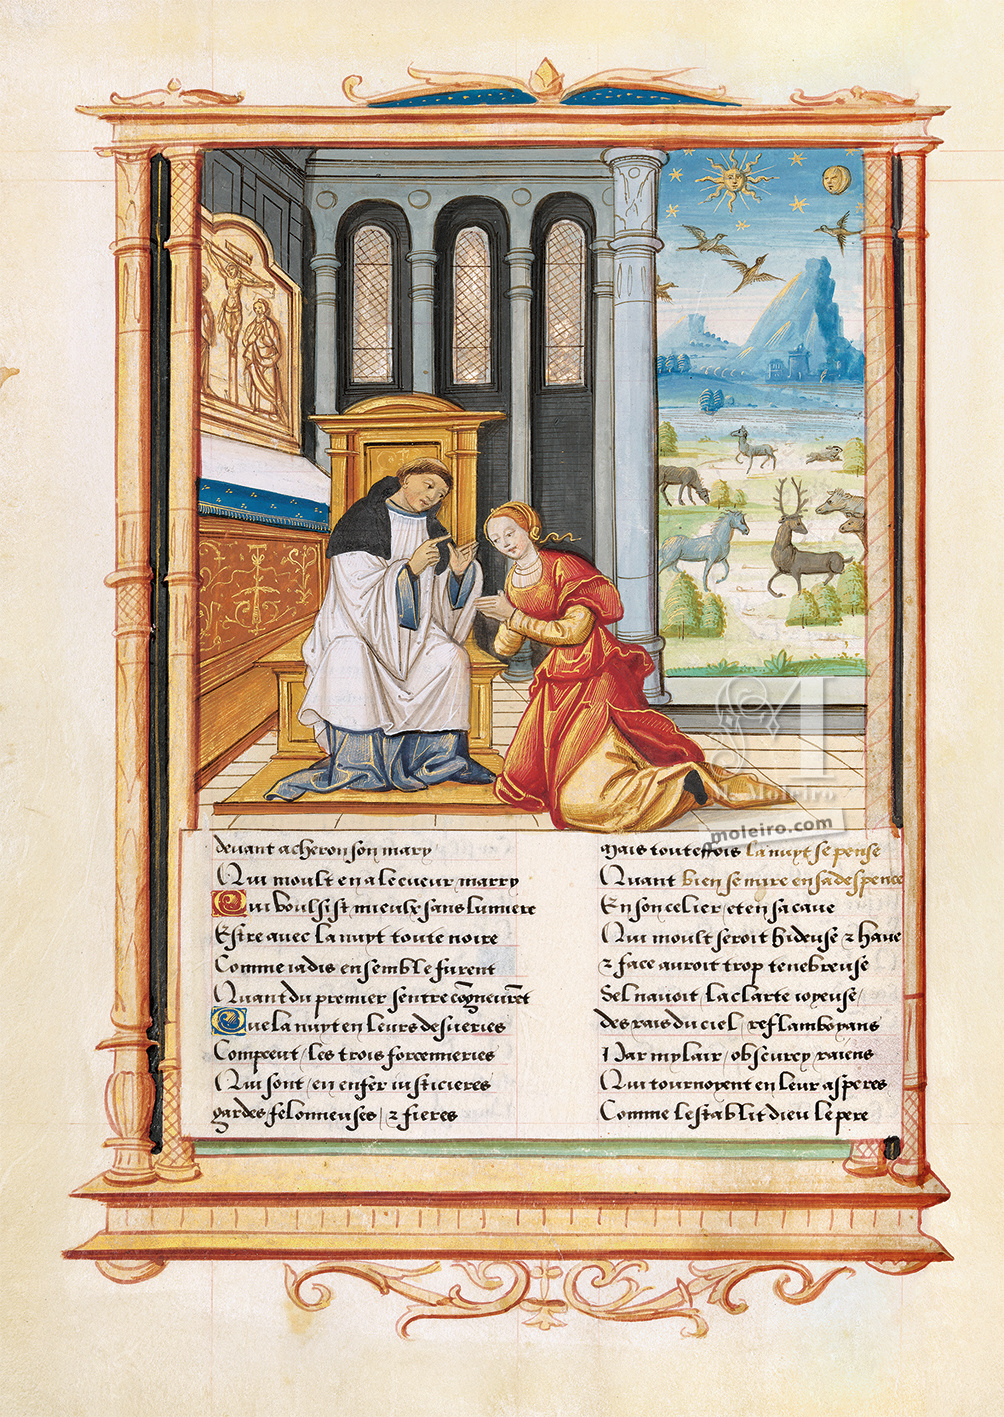 M
M. Moleiro
moleiro.com
devant acheron son mary
Qui moult en a le cueur marry
Qui voulsist mieulx sans lumiere
Estre avec la nuyt toute noire
Comme iadis ensemble furent
Quant du premier sentre cogneuret
Que la nuyt en leurs desueries
Compceut / les trois forcenneries
Qui sont / en enfer iusticieres
gardes / felonneuses / & fieres
Mais touteffois la nuyt se pense
Quant bien se mire en sa despence
En son celier / et en sa cave
Qui moult seroit hideuse & have
& face auroit trop tenebreuse
Sel navoit / la clarte ioyeuse /
des rais du ciel / reflamboyans
Par my lair / obscurcy raiens
Qui tournoyent en leur asperes
Comme lestablit dieu le pere